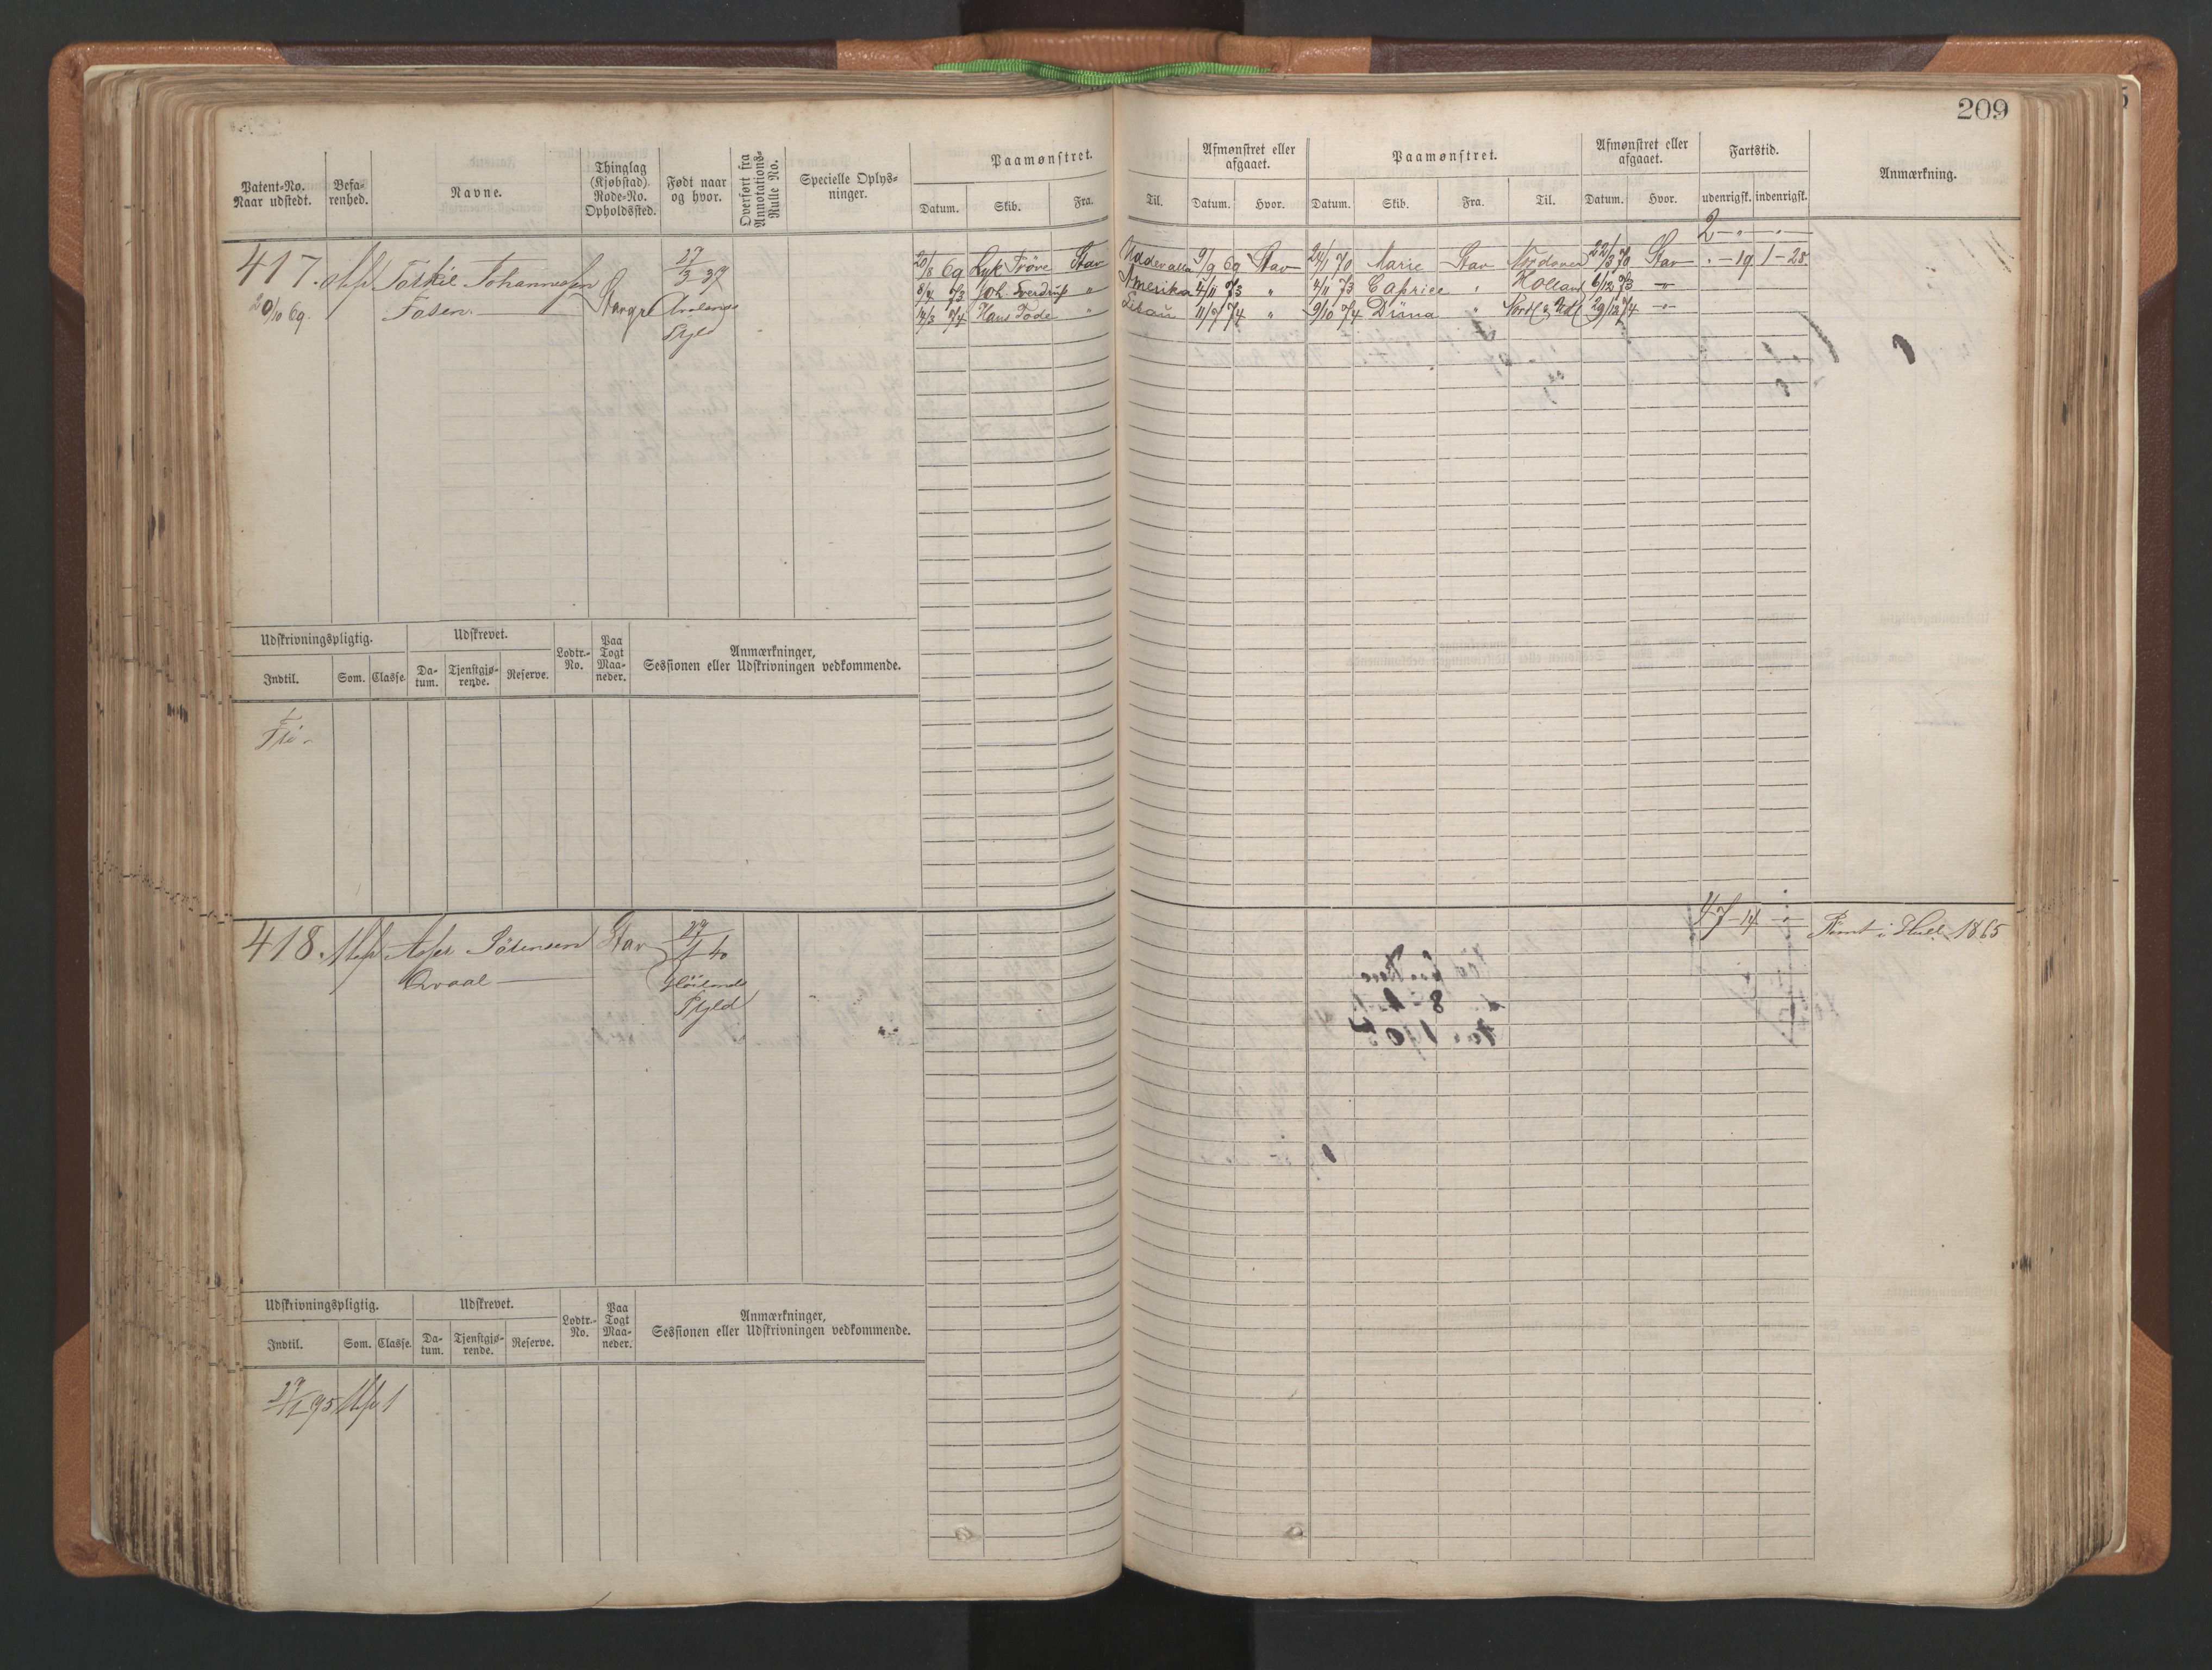 209
Patent-No.
Naar udstedt.
Befa-
renhed.
Navne.
Thinglag
(Kjøbstad)
Rode-No.
Opholdssted.
Født naar
og hvor.
Overført fra
Annotations-
Rulle No.
Specielle Oplys-
ninger.
Paamønstret.
Datum. Skib. Fra. Til.
Afmønstret eller
afgaaet.
Datum. Hvor.
Paamønstret.
Datum. Skib. Fra. Til.
Afmønstret eller
afgaaet.
Datum. Hvor.
Fartstid.
udenrigsk. indenrigsk.
Anmærkning.
2 - " - "
417. Torkil Johannessen
20/10 69. Stavgr
27/3 37
Skjold
20/8 69 Lyk Prøve Stav Uddevalla 9/9 69 Stav 24/1 70 Marie Stav Nordover 22/3 70 Stav " - 19 1 - 28
8/4 73 Joh. Sverdrup " Amerika 4/11 73 " 4/11 73 Caprice " Holland 6/12 73 -"-
14/3 74 Hans Tode " Libau 11/7 74 " 9/10 74 Düna " 29/12 74 -"-
Udskrivningspligtig.
Indtil. Som. Classe.
Udskrevet.
Da-
tum.
Tjenstgjø-
rende.
Reserve.
Lodtr.-
No.
Paa
Togt
Maa-
neder.
Anmærkninger,
Sessionen eller Udskrivningen vedkommende.
Fri -
418. Sørensen Stav 27/1 40
Qvaal
Høilands
Skjold
47 - 14 - " - Rømt i Hull 1865
Udskrivningspligtig.
Indtil. Som. Classe.
Udskrevet.
Da-
tum.
Tjenstgjø-
rende.
Reserve.
Lodtr.-
No.
Paa
Togt
Maa-
neder.
Anmærkninger,
Sessionen eller Udskrivningen vedkommende.
27/1 95 1